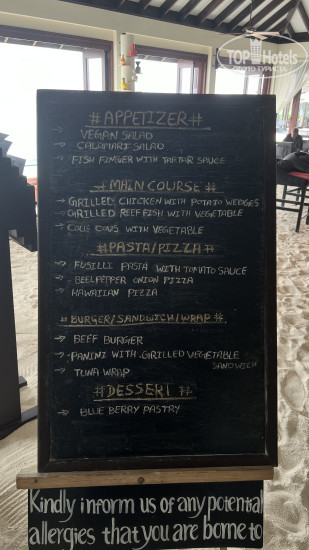 TopHotels
# APPETIZER #
→ VEGAN SALAD
→ CALAMARI SALAD
→ FISH FINGER WITH TARTAR SAUCE
# MAIN COURSE #
→ GRILLED CHICKEN WITH POTATO WEDGES
→ GRILLED REEF FISH WITH VEGETABLE
→ COUS COUS WITH VEGETABLE
# PASTA/PIZZA #
→ FUSILLI PASTA WITH TOMATO SAUCE
→ BELLPEPPER ONION PIZZA
→ HAWAIIAN PIZZA
# BURGER/SANDWICH/WRAP #
→ BEEF BURGER
→ PANINI WITH GRILLED VEGETABLE
SANDWICH
→ TUNA WRAP
# DESSERT #
→ BLUE BERRY PASTRY
Kindly inform us of any potential
allergies that you are borne to